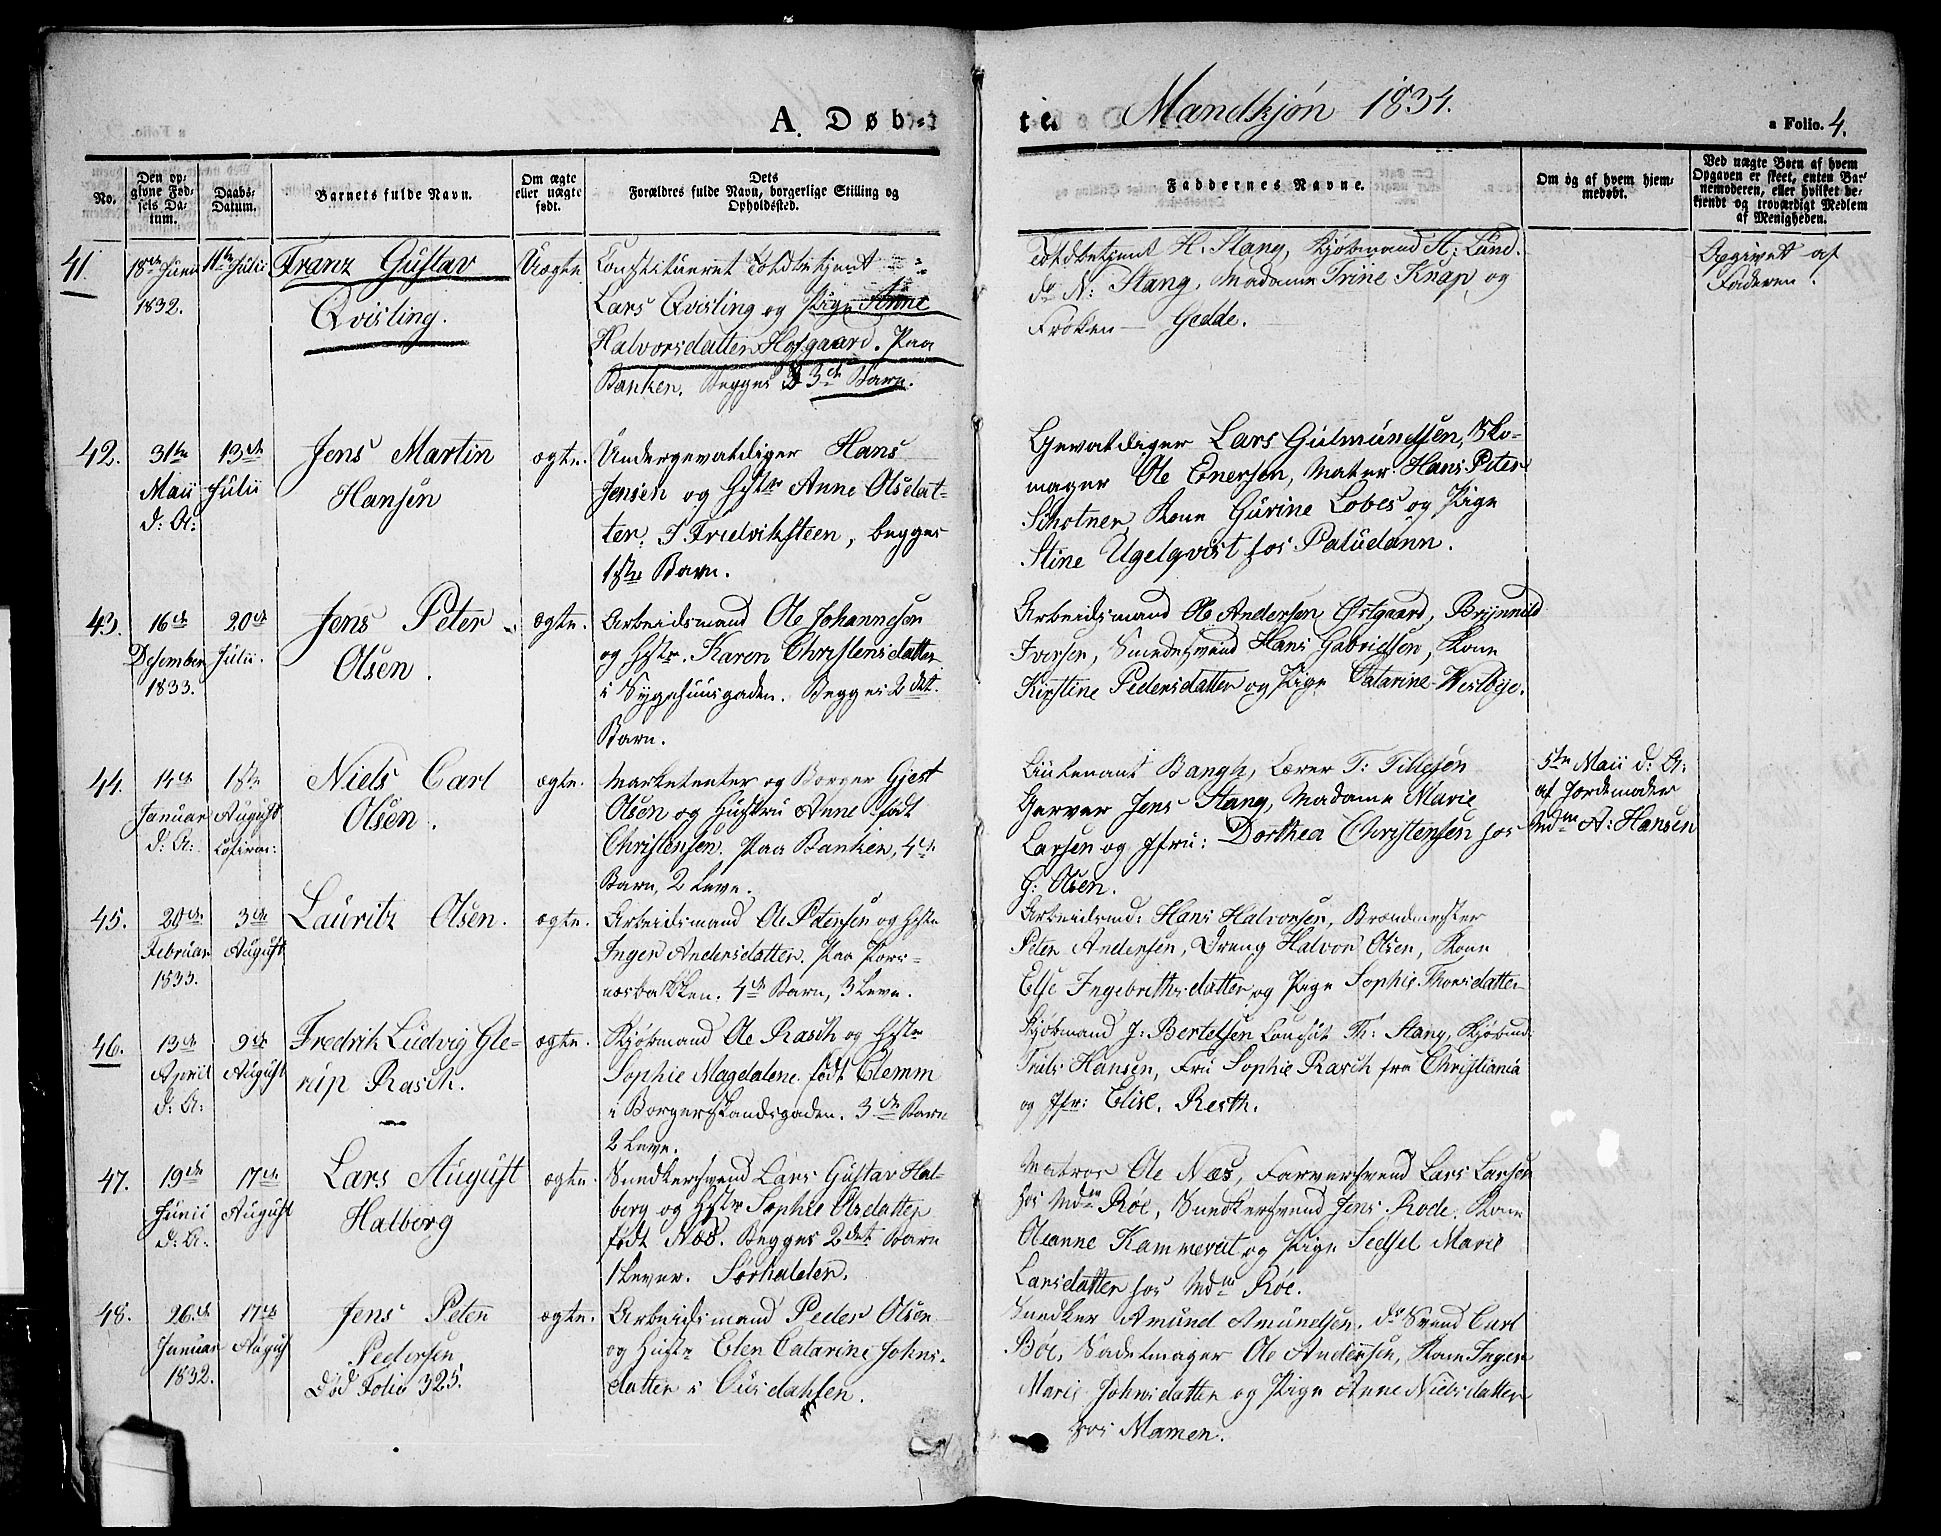 A. Døb-
te. Mandkjøn 1834.
a Folio. 4.
No.
Den opgivne Fødsels Datum.
Daabs-Datum.
Barnets fulde Navn.
Om ægte eller uægte født.
Dets Forældres fulde Navn, borgerlige Stilling og Opholdssted.
Faddernes Navne.
Om og af hvem hjemmedøbt.
Ved uægte Børn af hvem Opgaven er skeet, enten Barnemoderen, eller hvilket bekjendt og troværdigt Medlem af Menigheden.
41. 18de Junii 1832. 11te Julii
Franz Gustav
Qvisling.
Uægte
Constitueret Toldbetjent
Lars Qvisling og Pige Anne
Halvorsdatter Hofgaard. Paa
Banken. Begges 3de Barn.
Toldbetjent H. Stang, Kjøbmand H: Lund.
do N: Stang, Madame Trine Knap, og
Frøken — Gedde.
Opgivet af
Faderen.
42. 31te Maii d: A: 13de Julii
Jens Martin
Hansen
ægte.
Undergevaldiger Hans
Jensen og Hstr Anne Olsdat-
ter. I Fredriksteen, begges
1ste Barn.
Gevaldiger Lars Gulmundsen, Sko-
mager Ole Enersen, Mater: Hans Peter
Schotner, Kone Gurine Lobes og Pige
Stine Ugelqvist hos Paludann.
43. 16de Desember 1833. 20de Julii.
Jens Peter
Olsen.
ægte.
Arbeidsmand Ole Johannesen
og Hstr. Karen Christensdatter
i Sygehuusgaden. Begges 2det
Barn.
Arbeidsmand Ole Andersen Østgaard, Brynild
Iversen, Smedesvend Hans Gabrielsen, Kone
Kirstine Pedersdatter og Pige Catarine Westbye.
44. 14de Januar d: A: 1ste August
Niels Carl
Olsen.
ægte.
Marketenter og Borger Gjest
Olsen og Hustru Anne født
Christensen. Paa Banken, 4de
Barn, 2 leve.
Lieutenant Bangh, Lærer T: Tillesen
Garver Jens Stang, Madame Marie
Larsen og Jfru: Dorthea Christensen hos
G: Olsen.
5te Maii d: A:
af Jordemoder
Mdm A: Hansen
45. 20de Februar 1833. 3de August
Lauritz Olsen.
ægte.
Arbeidsmand Ole Petersen og Hstr
Inger Andersdatter. Paa Pors-
næsbakken. 4de Barn, 3 leve.
Arbeidsmd: Hans Halvorsen, Brandmester
Peter Andersen, Dreng Halvor Olsen, Kone
Else Ingebrethsdatter og Pige Sophie Thorsdatter
46. 13de April d: A: 9de August
Fredrik Ludvig Gle-
rup Rasch.
ægte.
Kjøbmand Ole Rasch og Hstr
Sophie Magdalene født Clemm
i Borgerskandsgaden. 3de Barn
2 leve.
Kjøbmand J: Bertelsen, Consul Th: Stang, Kjøbmd
Truls Hansen, Fru Sophie Rasch fra Christiania
og Jfr: Elise. Resth.
47. 19de Junii d: A: 17de August
Lars August
Halborg
ægte.
Snedkersvend Lars Gustav Hal-
borg og Hstr Sophie Olsdatter
født Næs. Begges 2det Barn
1 lever. Sørhalden.
Matros Ole Næs, Farversvend Lars Larsen
hos Mdm Røe, Snedkersvend Jens Rode, Kone
Oleanne Kammereit og Pige Sedsel Marie
Larsdatter hos Mdm Røe.
48. 26de Januar 1832. 17de August
Jens Peter
Pedersen,
Død Folio 325.
ægte.
Arbeidsmand Peder Olsen
og Hustr Elen Catarine Johns-
datter i Ousdahlen.
Snedker Amund Amundsen, do Svend Carl
Bøe, Sadelmager Ole Andersen, Kone Inger
Marie Johnsdatter og Pige Anne Nielsdatter
hos Mamen.